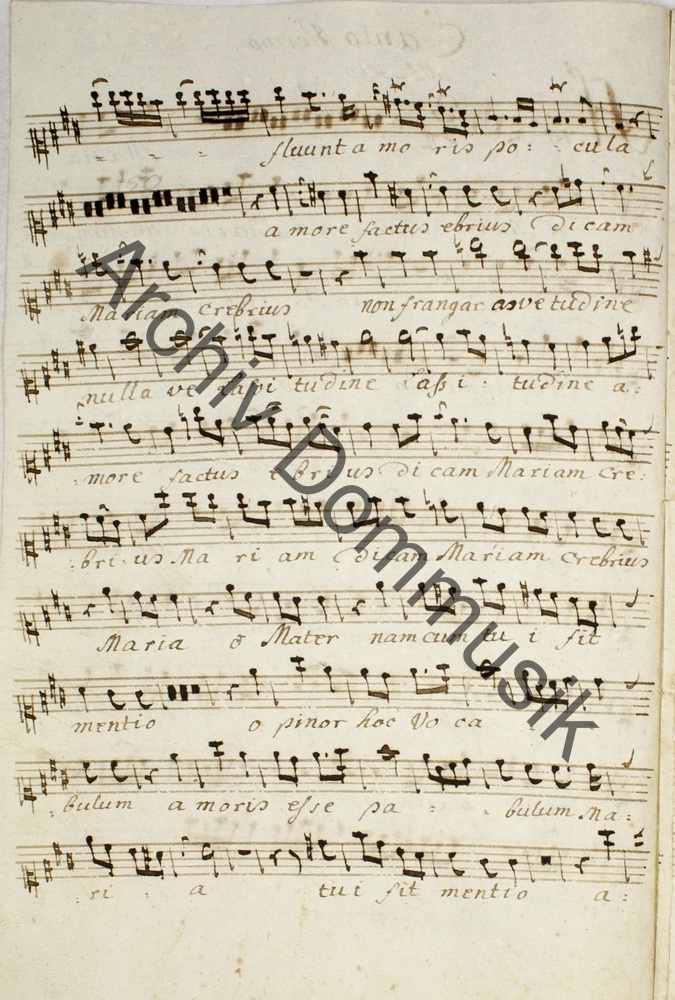 fluunt a mo ris po - cula
a more factus ebrius dicam
Mariam crebrius non frangar asvetudine
nulla ve tudine lassi - tudine a-
more factus ebrius dicam Mariam cre-
bri-us Ma ri am dicam Mariam crebrius
Maria o Mater nam cum tu i sit
mentio o pinor hoc Vo ca
bulum amoris esse pa - - bulum Ma-
ri - a tui sit mentio a-
Archiv Dommusik